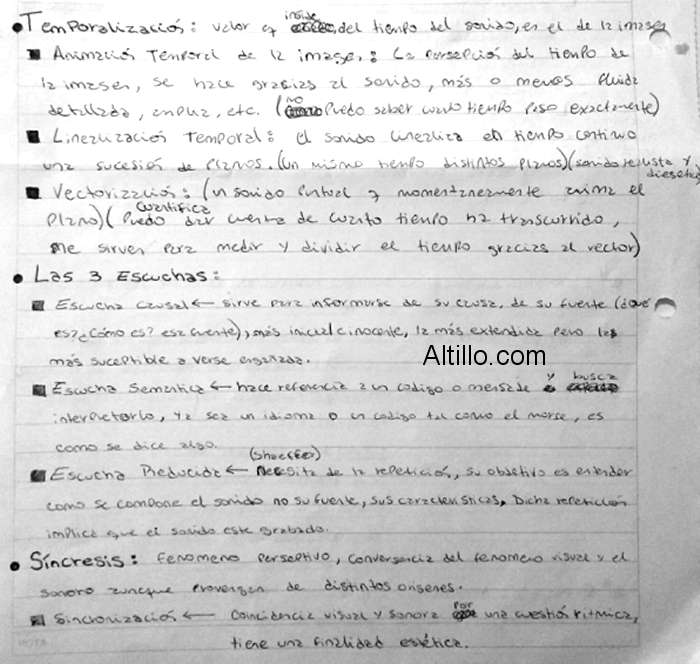 • Temporalización: valor q incide del tiempo del sonido, en el de la imagen
■ Animación Temporal de la imagen: La persepción del tiempo de
la imagen, se hace gracias al sonido, más o menos fluida
detallada, amplia, etc. (no puedo saber cuanto tiempo paso exactamente)
■ Linealización Temporal: el sonido linealiza en tiempo continuo
una sucesión de planos. (Un mismo tiempo distintos planos) (sonido realista y
diegético
■ Vectorización: (un sonido puntual q momentaneamente anima el
plano) (Cuantifica Puedo dar cuenta de cuanto tiempo ha transcurrido,
me sirven para medir y dividir el tiempo gracias al vector)
• Las 3 Escuchas:
■ Escucha causal ← sirve para informarse de su causa, de su fuente (¿qué
es? ¿Cómo es? esa fuente), más inicial e inocente, la más extendida pero la
más suceptible a verse engañada.
Altillo.com
■ Escucha Semantica ← hace referencia a un codigo o mensaje y busca
interpretarlo, ya sea un idioma o un codigo tal como el morse, es
como se dice algo.
■ Escucha Reducida ← (Shaeffer) Necesita de la repetición, su objetivo es entender
como se compone el sonido no su fuente, sus caracteristicas. Dicha repetición
implica que el sonido este grabado.
• Síncresis: fenomeno perseptivo, convergencia del fenomeno visual y el
sonoro aunque provengan de distintos origenes.
■ Sincronización ← Coincidencia visual y sonora por una cuestión ritmica,
tiene una finalidad estética.